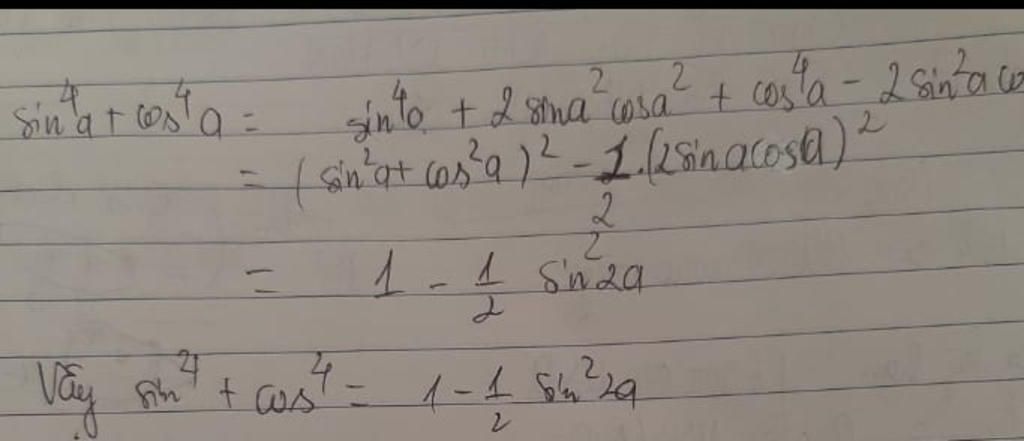 sin⁴a + cos⁴a = sin⁴a + 2 sina² cosa² + cos⁴a - 2 sin²a co
= (sin²a + cos²a)² - 1/2 . (2 sin a cos a)²
= 1 - 1/2 sin² 2a
Vậy sin⁴ + cos⁴ = 1 - 1/2 sin² 2a